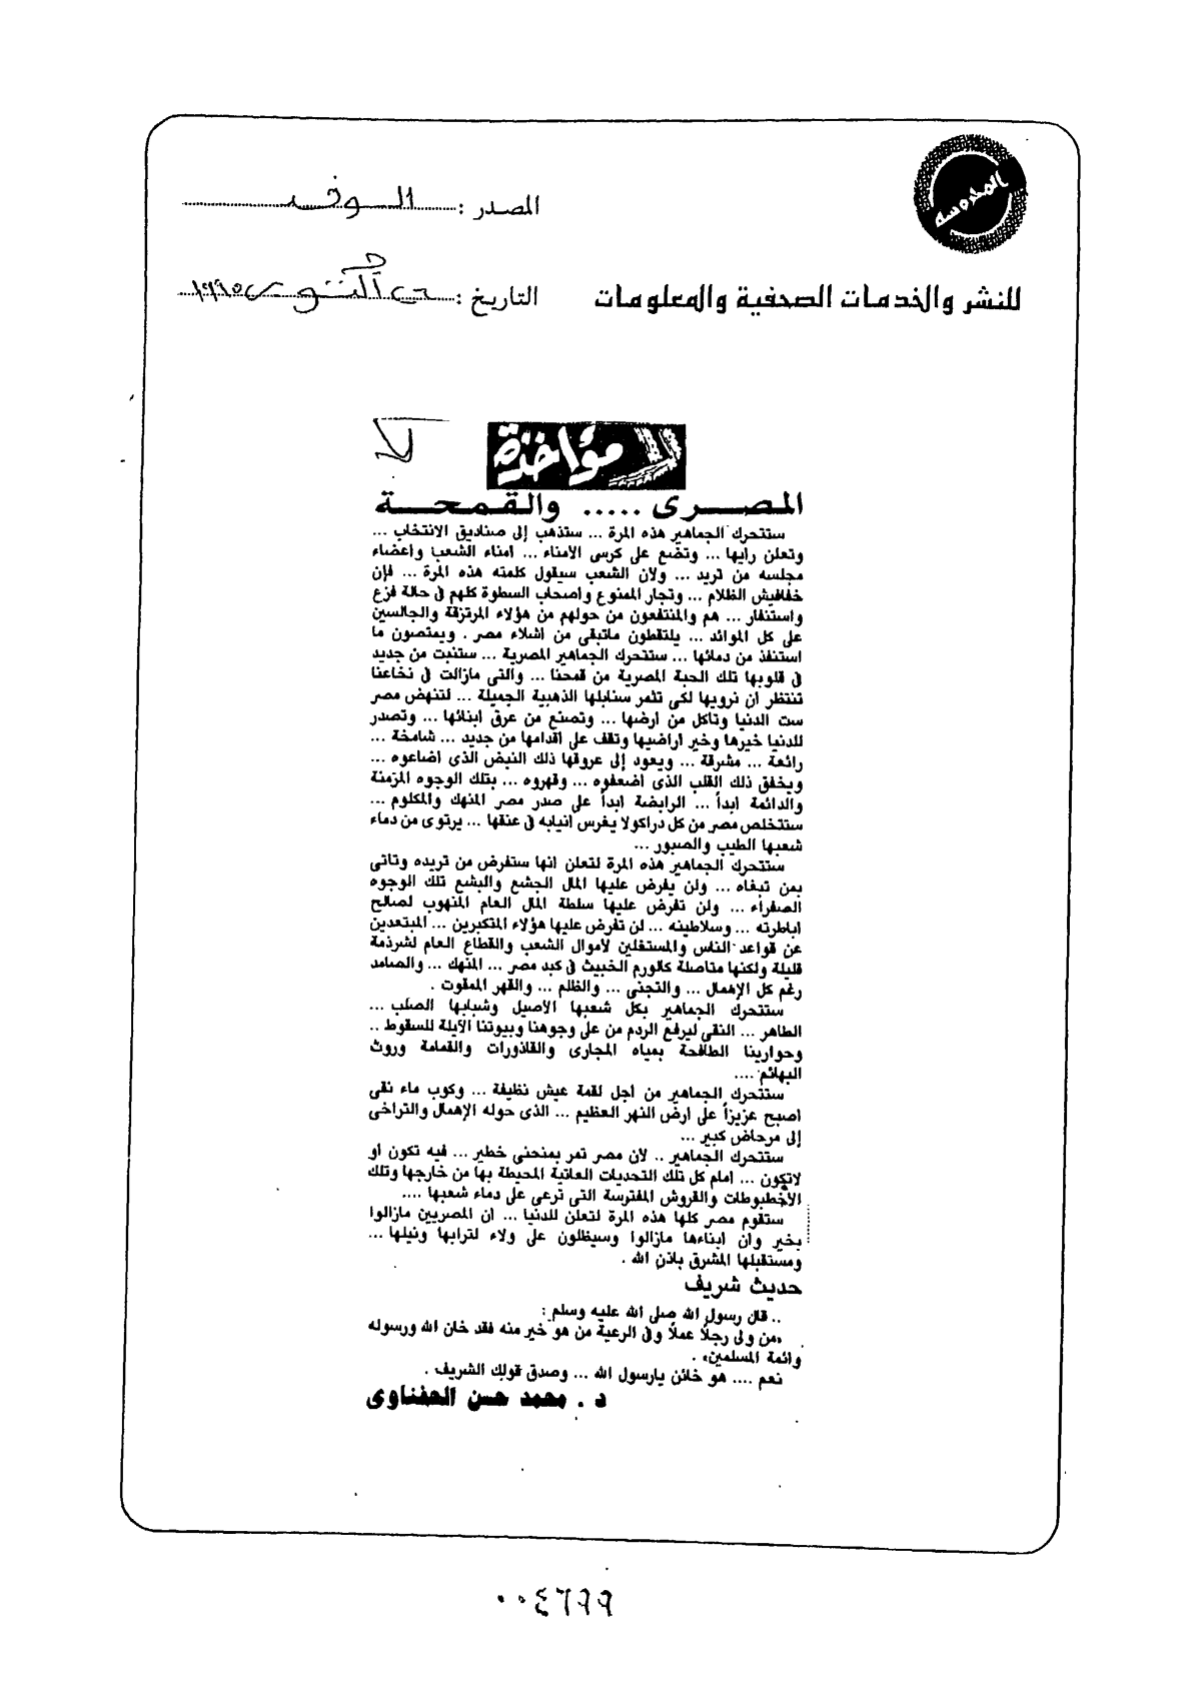 المحروسة
المصدر : الوفد
للنشر والخدمات الصحفية والمعلومات
التاريخ : ٢٦ أكتوبر ١٩٩٥
لا مؤاخذة
المصرى ..... والقمحة
ستتحرك الجماهير هذه المرة ... ستذهب إلى صناديق الانتخاب ...
وتعلن رايها ... وتضع على كرسى الأمناء ... امناء الشعب واعضاء
مجلسه من تريد ... ولان الشعب سيقول كلمته هذه المرة ... فإن
خفافيش الظلام ... وتجار الممنوع واصحاب السطوة كلهم فى حالة فزع
واستنفار ... هم والمنتفعون من حولهم من هؤلاء المرتزقة والجالسين
على كل الموائد ... يلتقطون ماتبقى من اشلاء مصر . ويمتصون ما
استنفذ من دمائها ... ستتحرك الجماهير المصرية ... ستنبت من جديد
فى قلوبها تلك الحبة المصرية من قمحنا ... والتى مازالت فى نخاعنا
تنتظر ان نرويها لكى تثمر سنابلها الذهبية الجميلة ... لتنهض مصر
ست الدنيا وتاكل من ارضها ... وتصنع من عرق ابنائها ... وتصدر
للدنيا خيرها وخير اراضيها وتقف على اقدامها من جديد ... شامخة ...
رائعة ... مشرقة ... ويعود إلى عروقها ذلك النبض الذى اضاعوه ...
ويخفق ذلك القلب الذى اضعفوه ... وقهروه ... بتلك الوجوه المزمنة
والدائمة ابداً ... الرابضة ابداً على صدر مصر المنهك والمكلوم ...
ستتخلص مصر من كل دراكولا يغرس انيابه فى عنقها ... يرتوى من دماء
شعبها الطيب والصبور ...
ستتحرك الجماهير هذه المرة لتعلن انها ستفرض من تريده وتاتى
بمن تبغاه ... ولن يفرض عليها المال الجشع والبشع تلك الوجوه
الصفراء ... ولن تفرض عليها سلطة المال العام المنهوب لصالح
اباطرته ... وسلاطينه ... لن تفرض عليها هؤلاء المتكبرين ... المبتعدين
عن قواعد الناس والمستغلين لأموال الشعب والقطاع العام لشرذمة
قليلة ولكنها متاصلة كالورم الخبيث فى كبد مصر ... المنهك ... والصامد
رغم كل الإهمال ... والتجنى ... والظلم ... والقهر الممقوت .
ستتحرك الجماهير بكل شعبها الأصيل وشبابها الصلب ...
الطاهر ... النقى ليرفع الردم من على وجوهنا وبيوتنا الآيلة للسقوط ..
وحوارينا الطافحة بمياه المجارى والقاذورات والقمامة وروث
البهائم ....
ستتحرك الجماهير من اجل لقمة عيش نظيفة ... وكوب ماء نقى
اصبح عزيزاً على ارض النهر العظيم ... الذى حوله الإهمال والتراخى
إلى مرحاض كبير ...
ستتحرك الجماهير .. لأن مصر تمر بمنحنى خطير ... فيه تكون او
لاتكون ... امام كل تلك التحديات العاتية المحيطة بها من خارجها وتلك
الأخطبوطات والقروش المفترسة التى ترعى على دماء شعبها ....
ستقوم مصر كلها هذه المرة لتعلن للدنيا ... ان المصريين مازالوا
بخير وان ابناءها مازالوا وسيظلون على ولاء لترابها ونيلها ...
ومستقبلها المشرق باذن الله .
حديث شريف
.. قال رسول الله صلى الله عليه وسلم :
«من ولى رجلاً عملاً وفى الرعية من هو خير منه فقد خان الله ورسوله
وائمة المسلمين» .
نعم .... هو خائن يارسول الله ... وصدق قولك الشريف .
د . محمد حسن الحفناوى
٠٠٤٦٩٩